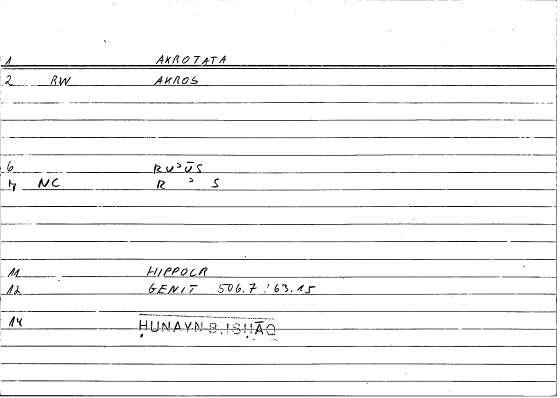 1 AKROTATA
2 RW AKROS
6 RUʾŪS
7 NC R ʾ S
11 HIPPOCR
12 GENIT 506.7 : 63.15
14 ḤUNAYN B. ISḤĀQ